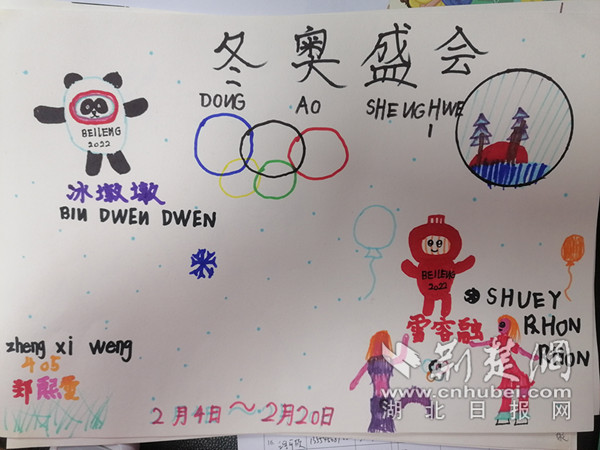 冬奥盛会
DONG AO SHENGHWEI
BEILEMG
2022
冰墩墩
BIN DWEN DWEN
BEILEMG
2022
SHUEY
RHON
RHON
雪容融
zheng xi weng
405
2月4日~2月20日
荆楚网
www.cnhubei.com
湖北日报网